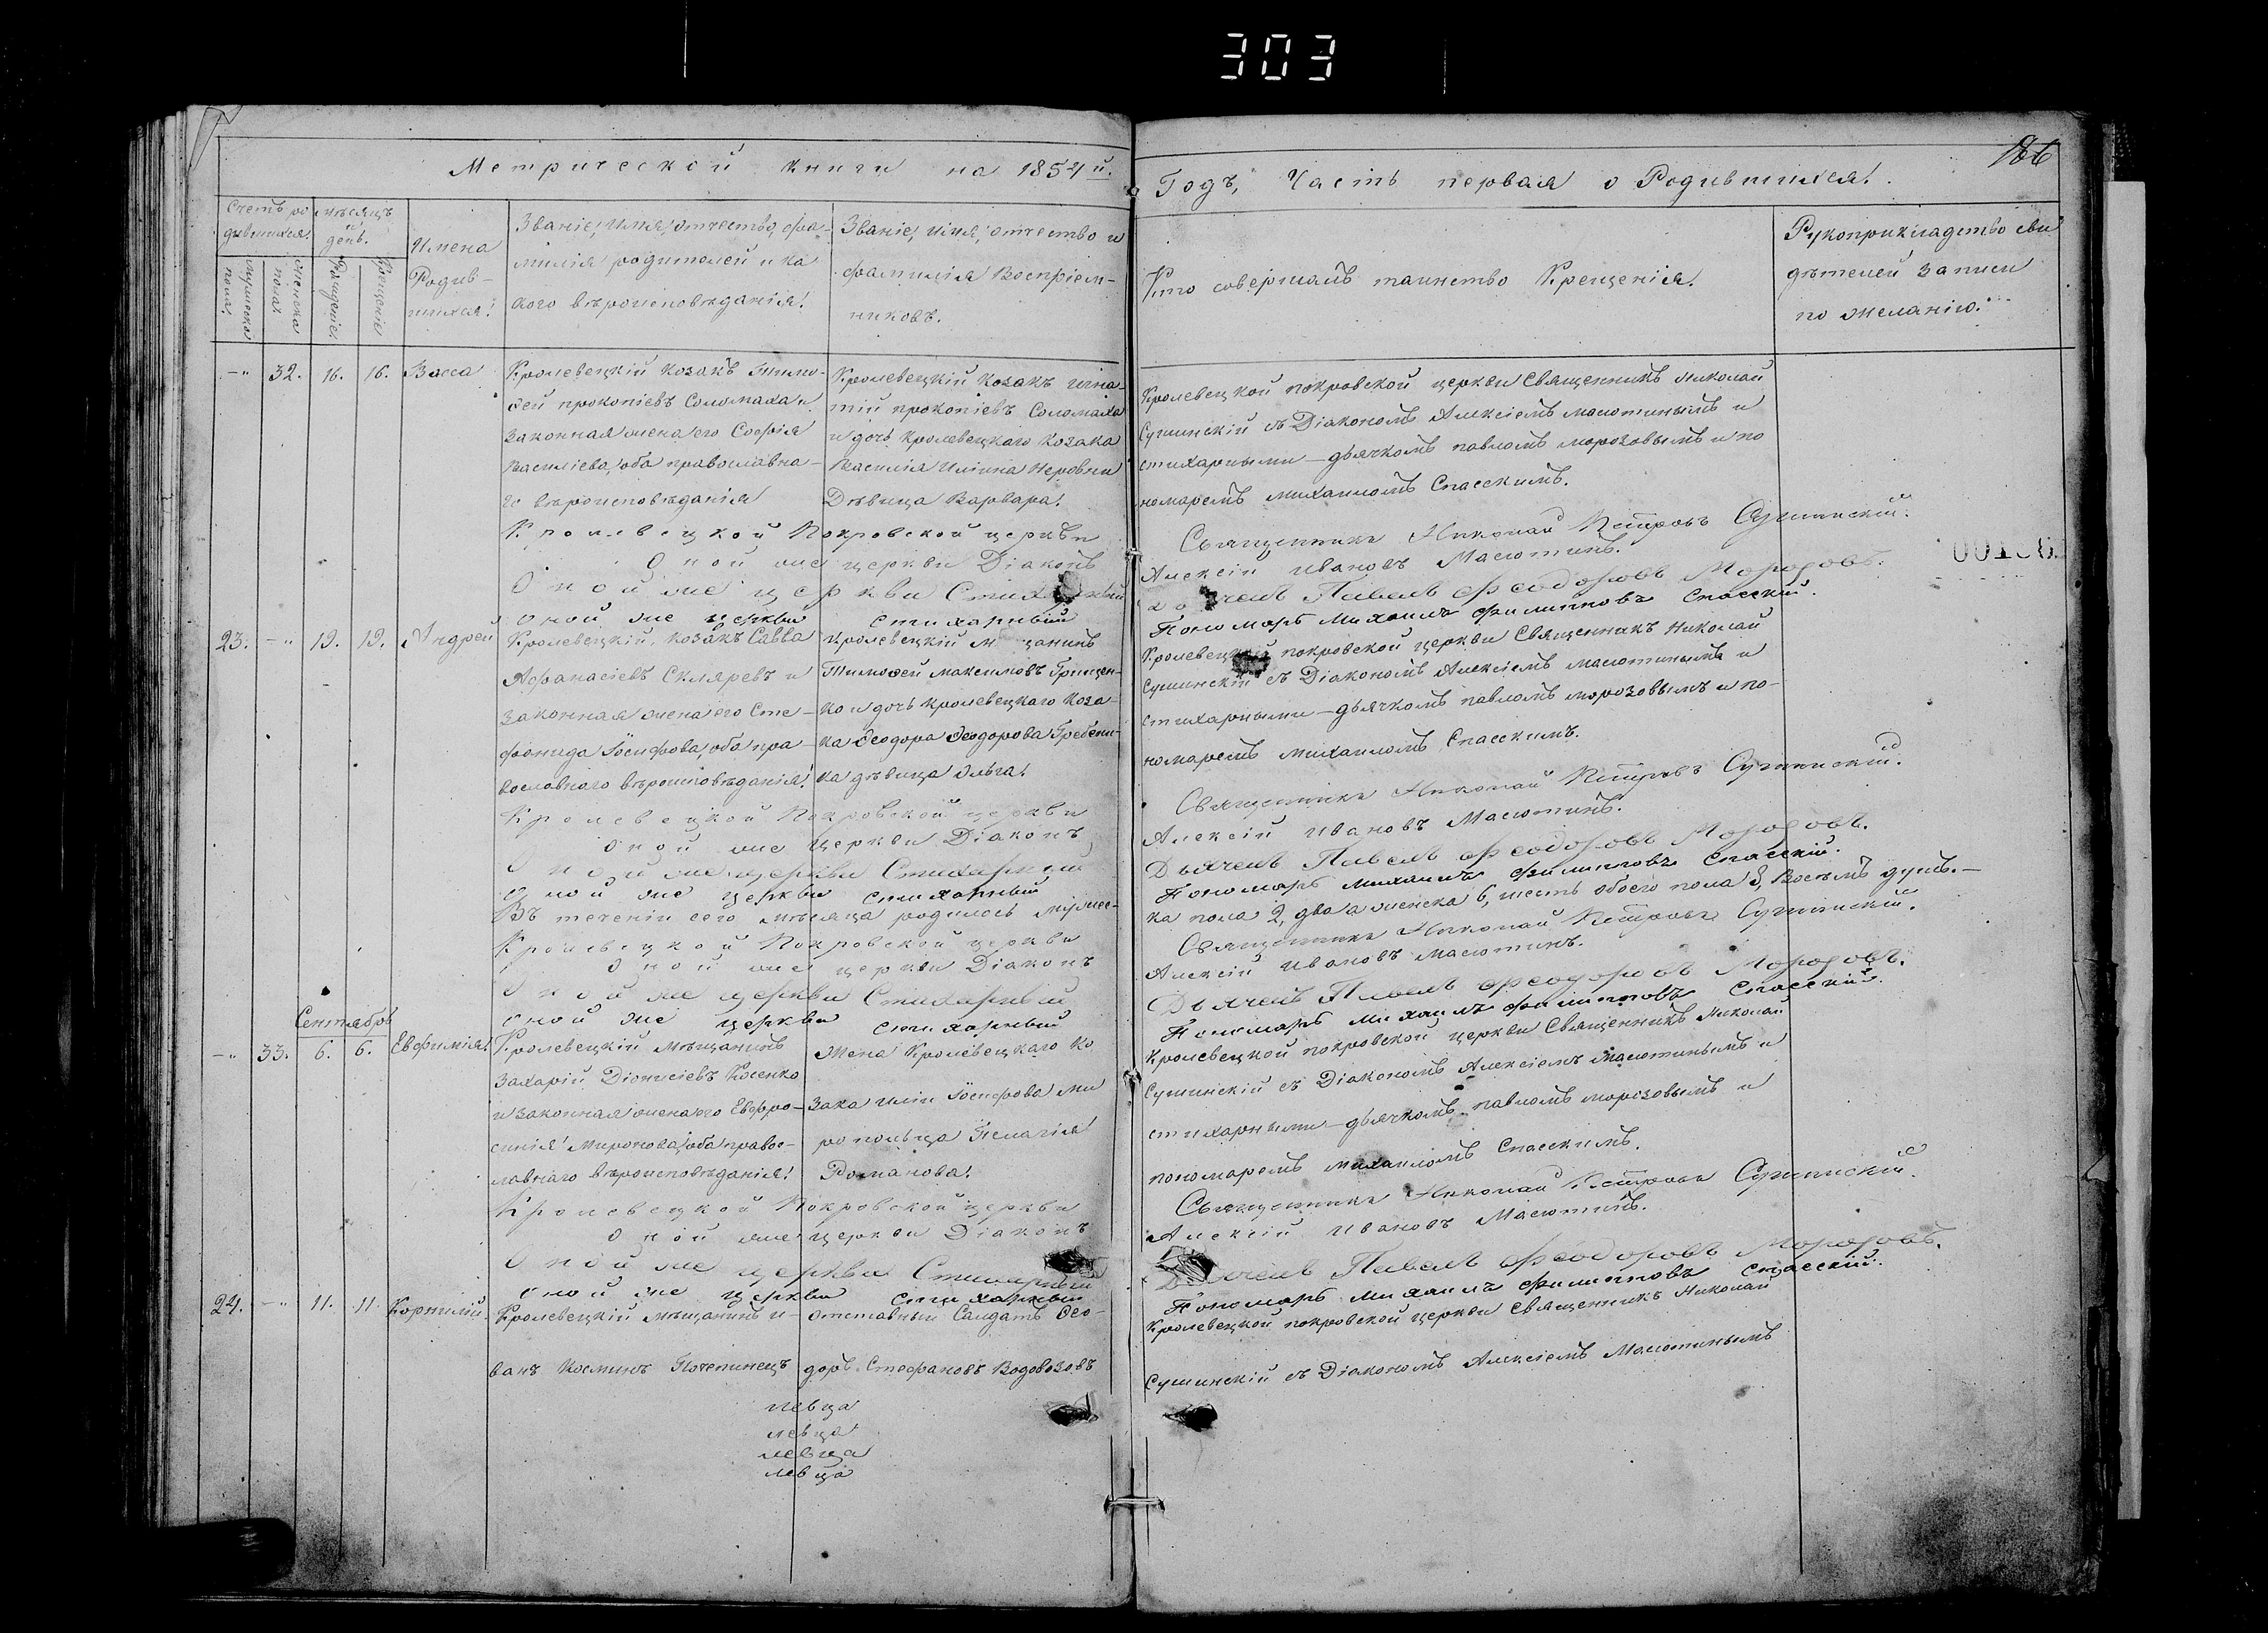 303
186
Метрической книги на 1854й.
Годъ, Часть первая о Родившихся.
Счетъ родившихся.
мужеска пола.
женска пола.
мѣсяцъ и день.
Рожденіе.
Крещеніе.
Имена Родившихся.
Званіе, имя, отчество, фа-
милія родителей и ка
кого вѣроисповѣданія.
Званіе, имя, отчество и
фамилія Воспріем-
никовъ.
Кто совершалъ таинство Крещенія.
Рукоприкладство сви
дѣтелей записи
по желанію.
—" 32. 16. 16. Васса
Кролевецкій козакъ Тимо-
ѳей прокопіевъ Соломаха и
законная жена его Софія
Василіева, оба православна-
го вѣроисповѣданія
Кролевецкій козакъ игна-
тій прокопіевъ Соломаха
и дочь кролевецкаго козака
Василія Ильина Неровни
Дѣвица Варвара.
Кролевецкой покровской церкви Священникъ Николай
Сушинскій съ Діакономъ Алексіемъ масютинымъ и
стихарными—дьячкомъ павломъ морозовымъ и по
номаремъ михаиломъ Спасскимъ.
Кролевецкой Покровской церкви Священникъ Николай Петровъ Сушинскій.
Оной же церкви Діаконъ Алексій Ивановъ Масютинъ.
Оной же церкви Стихарный дьячекъ Павелъ Феодоровъ Морозовъ.
Оной же церкви стихарный Пономарь Михаилъ Филиповъ Спасскій.
23. —" 19. 19. Андрей
Кролевецкій козакъ Савва
Афанасіевъ Скляревъ и
законная жена его Сте-
фанида Іосифова, оба пра-
вославного вѣроисповѣданія.
Кролевецкій мѣщанинъ
Тимоѳей максимовъ Грищен-
ко и дочь кролевецкаго коза-
ка Ѳеодора Ѳеодорова Гребени-
ка дѣвица Ольга.
Кролевецкой покровской церкви Священникъ Николай
Сушинскій съ Діакономъ Алексіемъ масютинымъ и
стихарными—дьячкомъ павломъ морозовымъ и по-
номаремъ михаиломъ Спасскимъ.
Кролевецкой Покровской церкви Священникъ Николай Петровъ Сушинскій.
Оной же церкви Діаконъ Алексій Ивановъ Масютинъ.
Оной же церкви Стихарный Дьячекъ Павелъ Феодоровъ Морозовъ.
Оной же церкви стихарный Пономарь михаилъ Филиповъ Спасскій.
Въ теченіи сего мѣсяца родилось мужес- ка пола 2, два а женска 6, шесть обоего пола 8, Восьмъ душъ.—
Кролевецкой Покровской церкви Священникъ Николай Петровъ Сушинскій.
Оной же церкви Діаконъ Алексій Ивановъ Масютинъ.
Оной же церкви Стихарный Дьячекъ Павелъ Феодоровъ Морозовъ.
Оной же церкви стихарный Пономарь Михаилъ Филипповъ Спасскій.
Сентябрь
—" 33. 6. 6. Евфимія.
Кролевецкій мѣщанинъ
Захарій Діонисіевъ Косенко
и законная жена его Евфро-
синія Миронова, оба правос-
лавнаго вѣроисповѣданія.
Жена Кролевецкаго ко
зака Иліи Іосифова ми
ропольца Пелагія
Романова.
Кролевецкой покровской церкви Священникъ Николай
Сушинскій съ Діакономъ Алексіемъ Масютинымъ и
стихарными—дьячкомъ павломъ морозовымъ и
пономаремъ михаиломъ Спасскимъ.
Кролевецкой Покровской церкви Священникъ Николай Петровъ Сушинскій.
Оной же церкви Діаконъ Алексій Ивановъ Масютинъ.
Оной же церкви Стихарный Дьячекъ Павелъ Феодоровъ Морозовъ.
Оной же церкви стихарный Пономарь Михаилъ Филипповъ Спасскій.
24. —" 11. 11. Корнилій.
Кролевецкій мѣщанинъ и-
ванъ Косминъ Почепинецъ
отставный Салдатъ Ѳео-
доръ Стефановъ Водовозовъ
Кролевецкой покровской церкви Священникъ Николай
Сушинскій съ Діакономъ Алексіемъ Масютинымъ
левца
левца
левца
левца